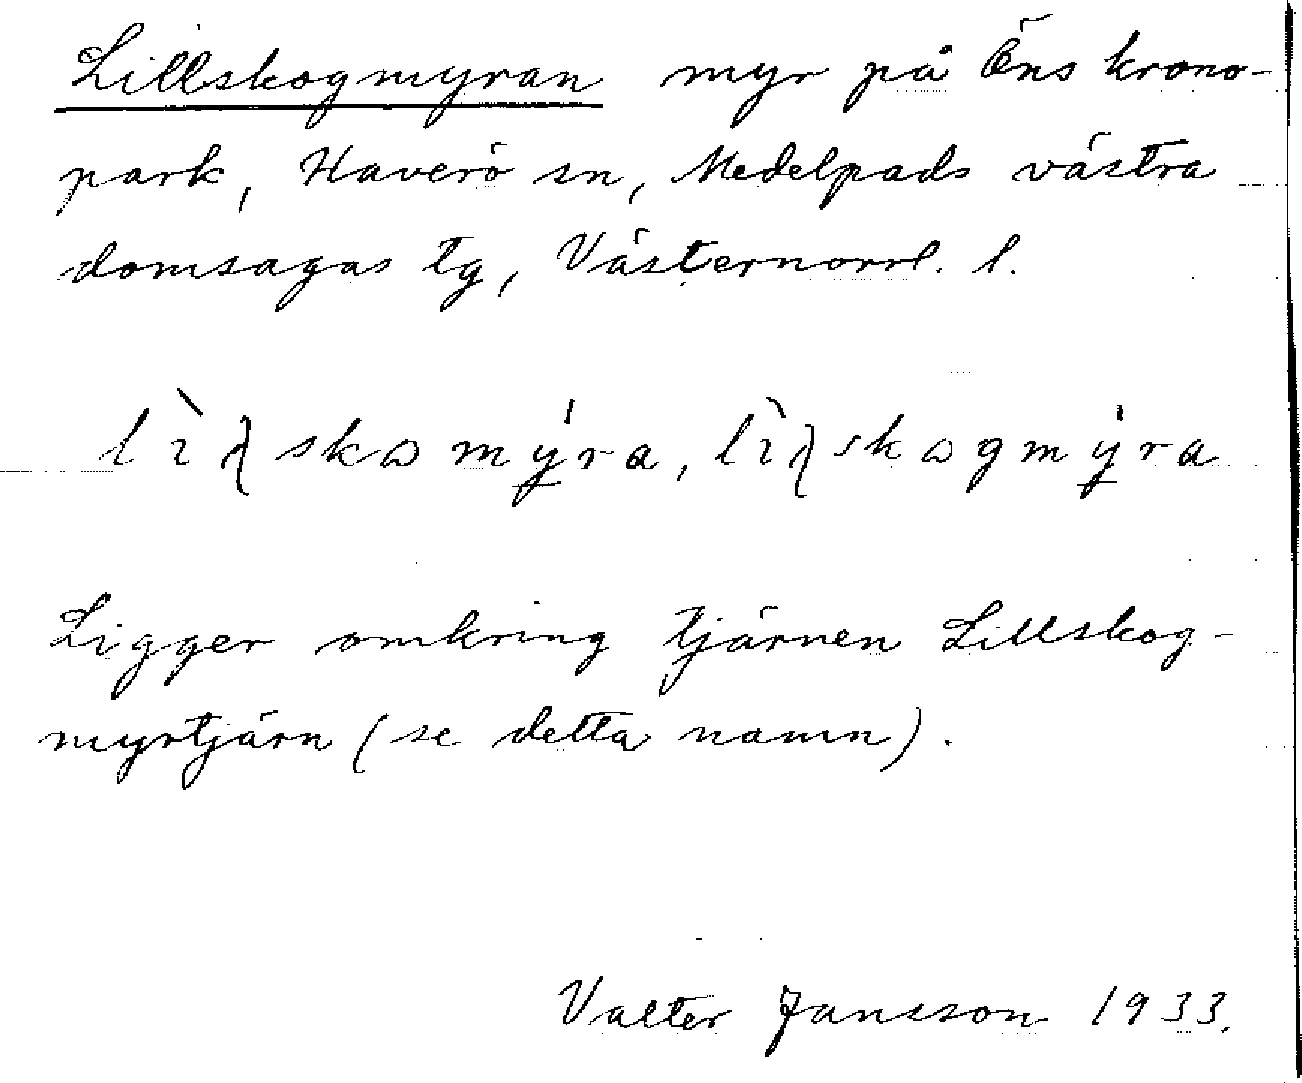 Lillskogmyran myr på Öns krono-
park, Haverö sn, Medelpads västra
domsagas tg, Västernorrl. l.
Ligger omkring tjärnen Lillskog-
myrtjärn (se detta namn).
Valter Jansson 1933.